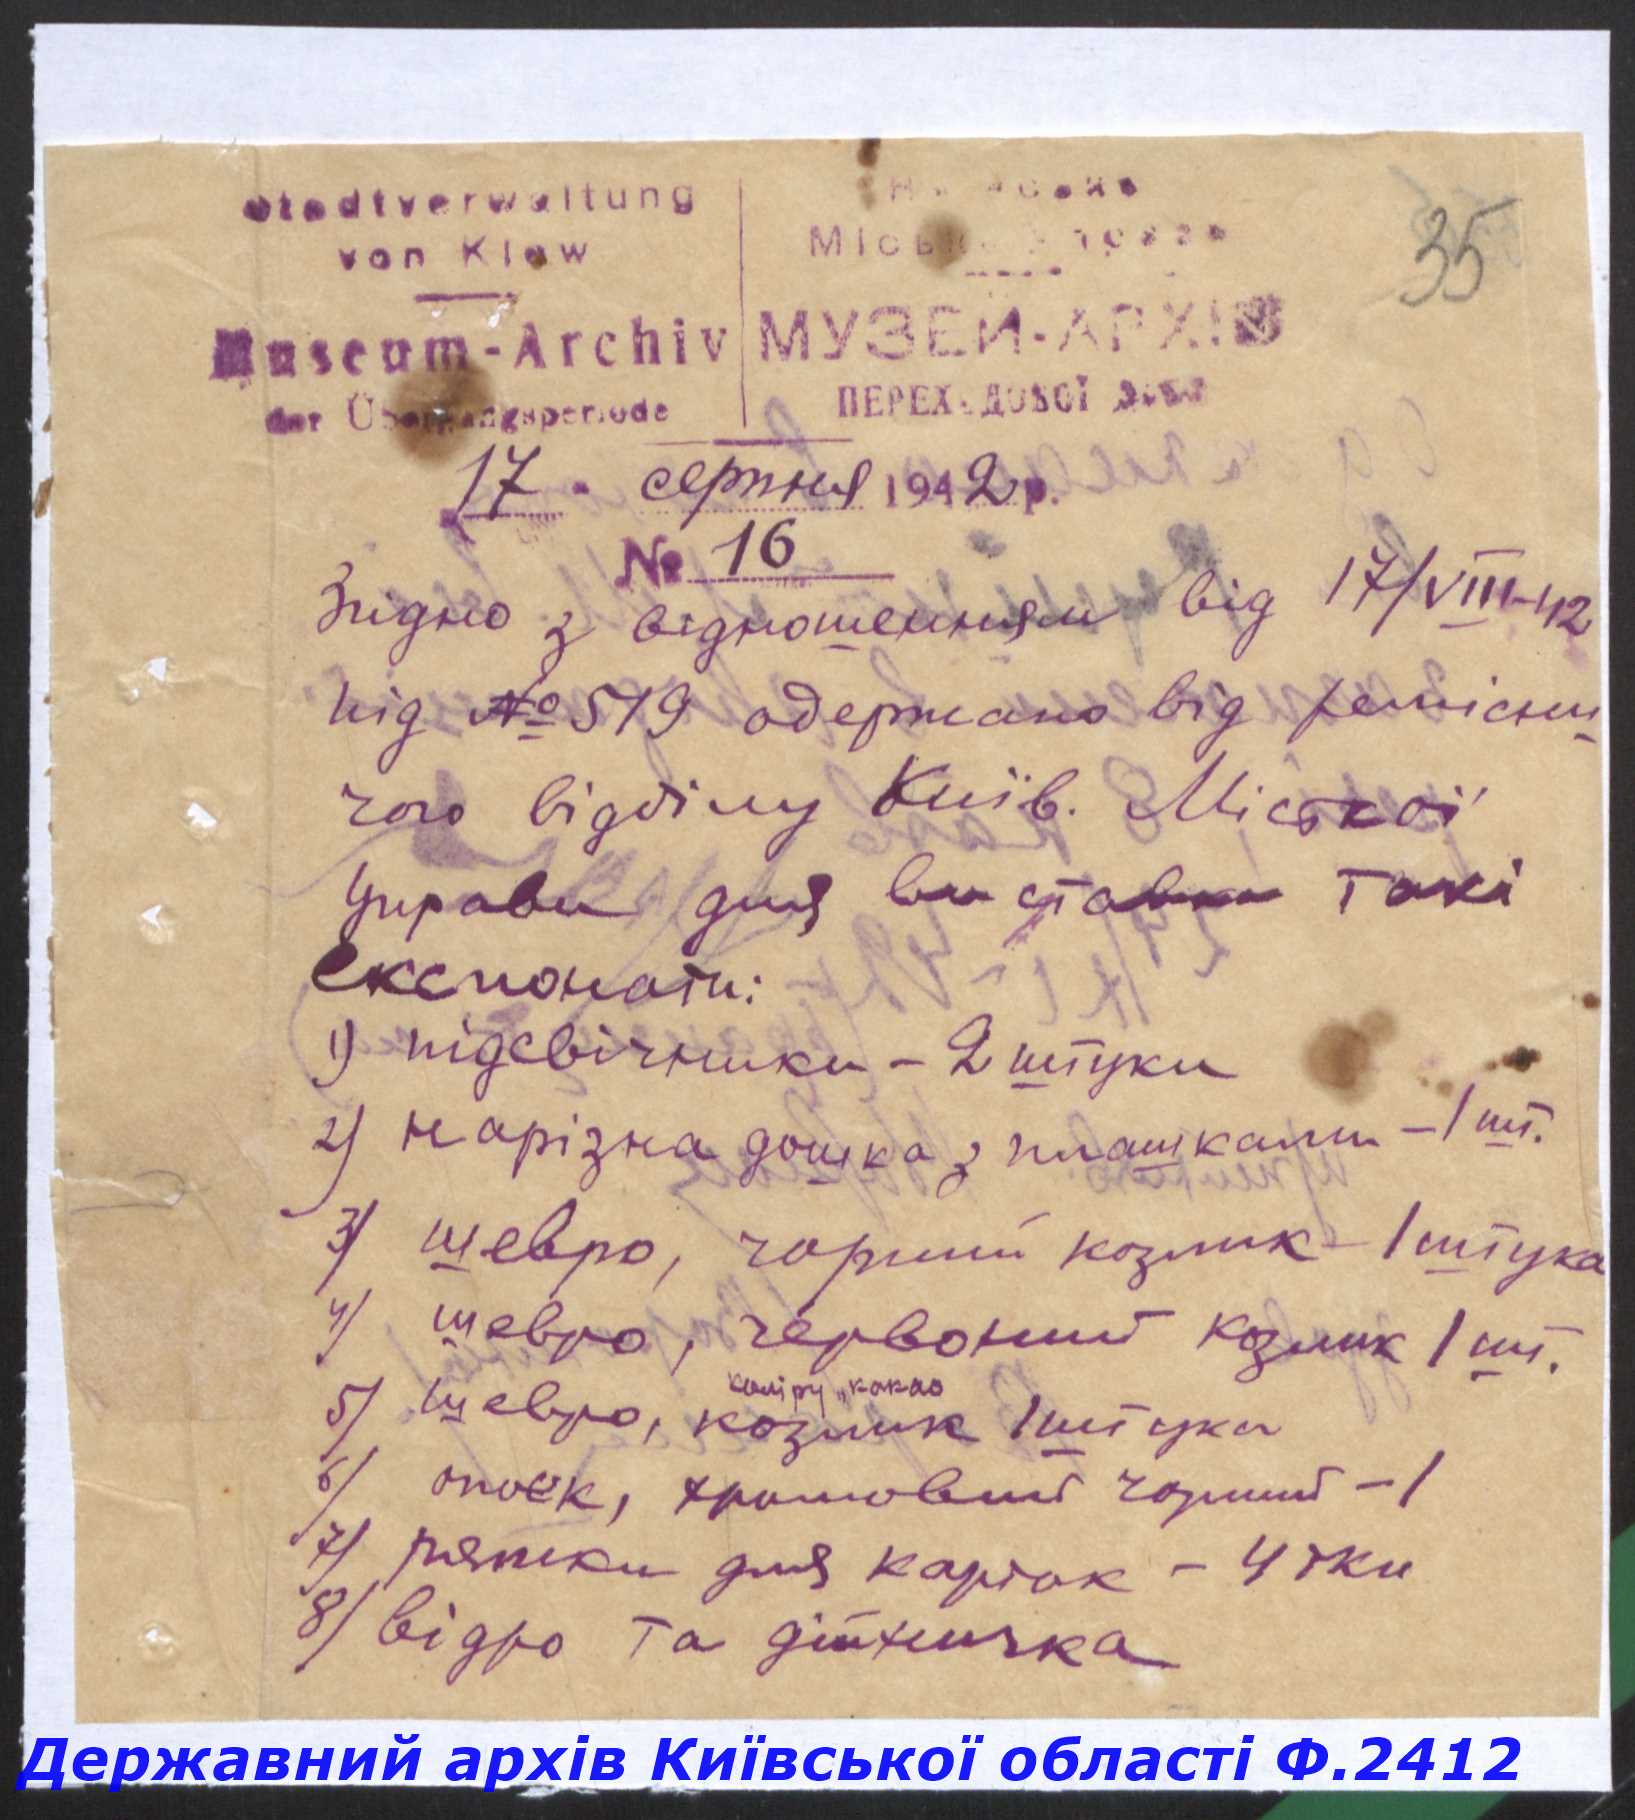 Stadtverwaltung
von Kiew
Museum-Archiv
der Übergangsperiode
Міська Управа
МУЗЕЙ-АРХІВ
ПЕРЕХОДОВОЇ ДОБИ
35
17 серпня 1942 р.
№ 16
Згідно з відношенням від 17/VIII-42
під № 519 одержано від ремісни
чого відділу Київ. Міської
Управи для виставки такі
експонати:
1) підсвічники – 2 штуки
2) нарізна дошка з плашками – 1 шт.
3) шевро, чорний козлик – 1 штука
4) шевро, червоний козлик 1 шт.
коліру „какао
5) шевро, козлик 1 штука
6) опоєк, хромовий чорний – 1
7) рямки для карток – 4 тки
8) відро та дійничка
Державний архів Київської області Ф.2412